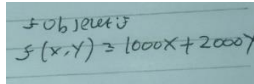 f objeletif
f (x,y) = 1000x + 2000y